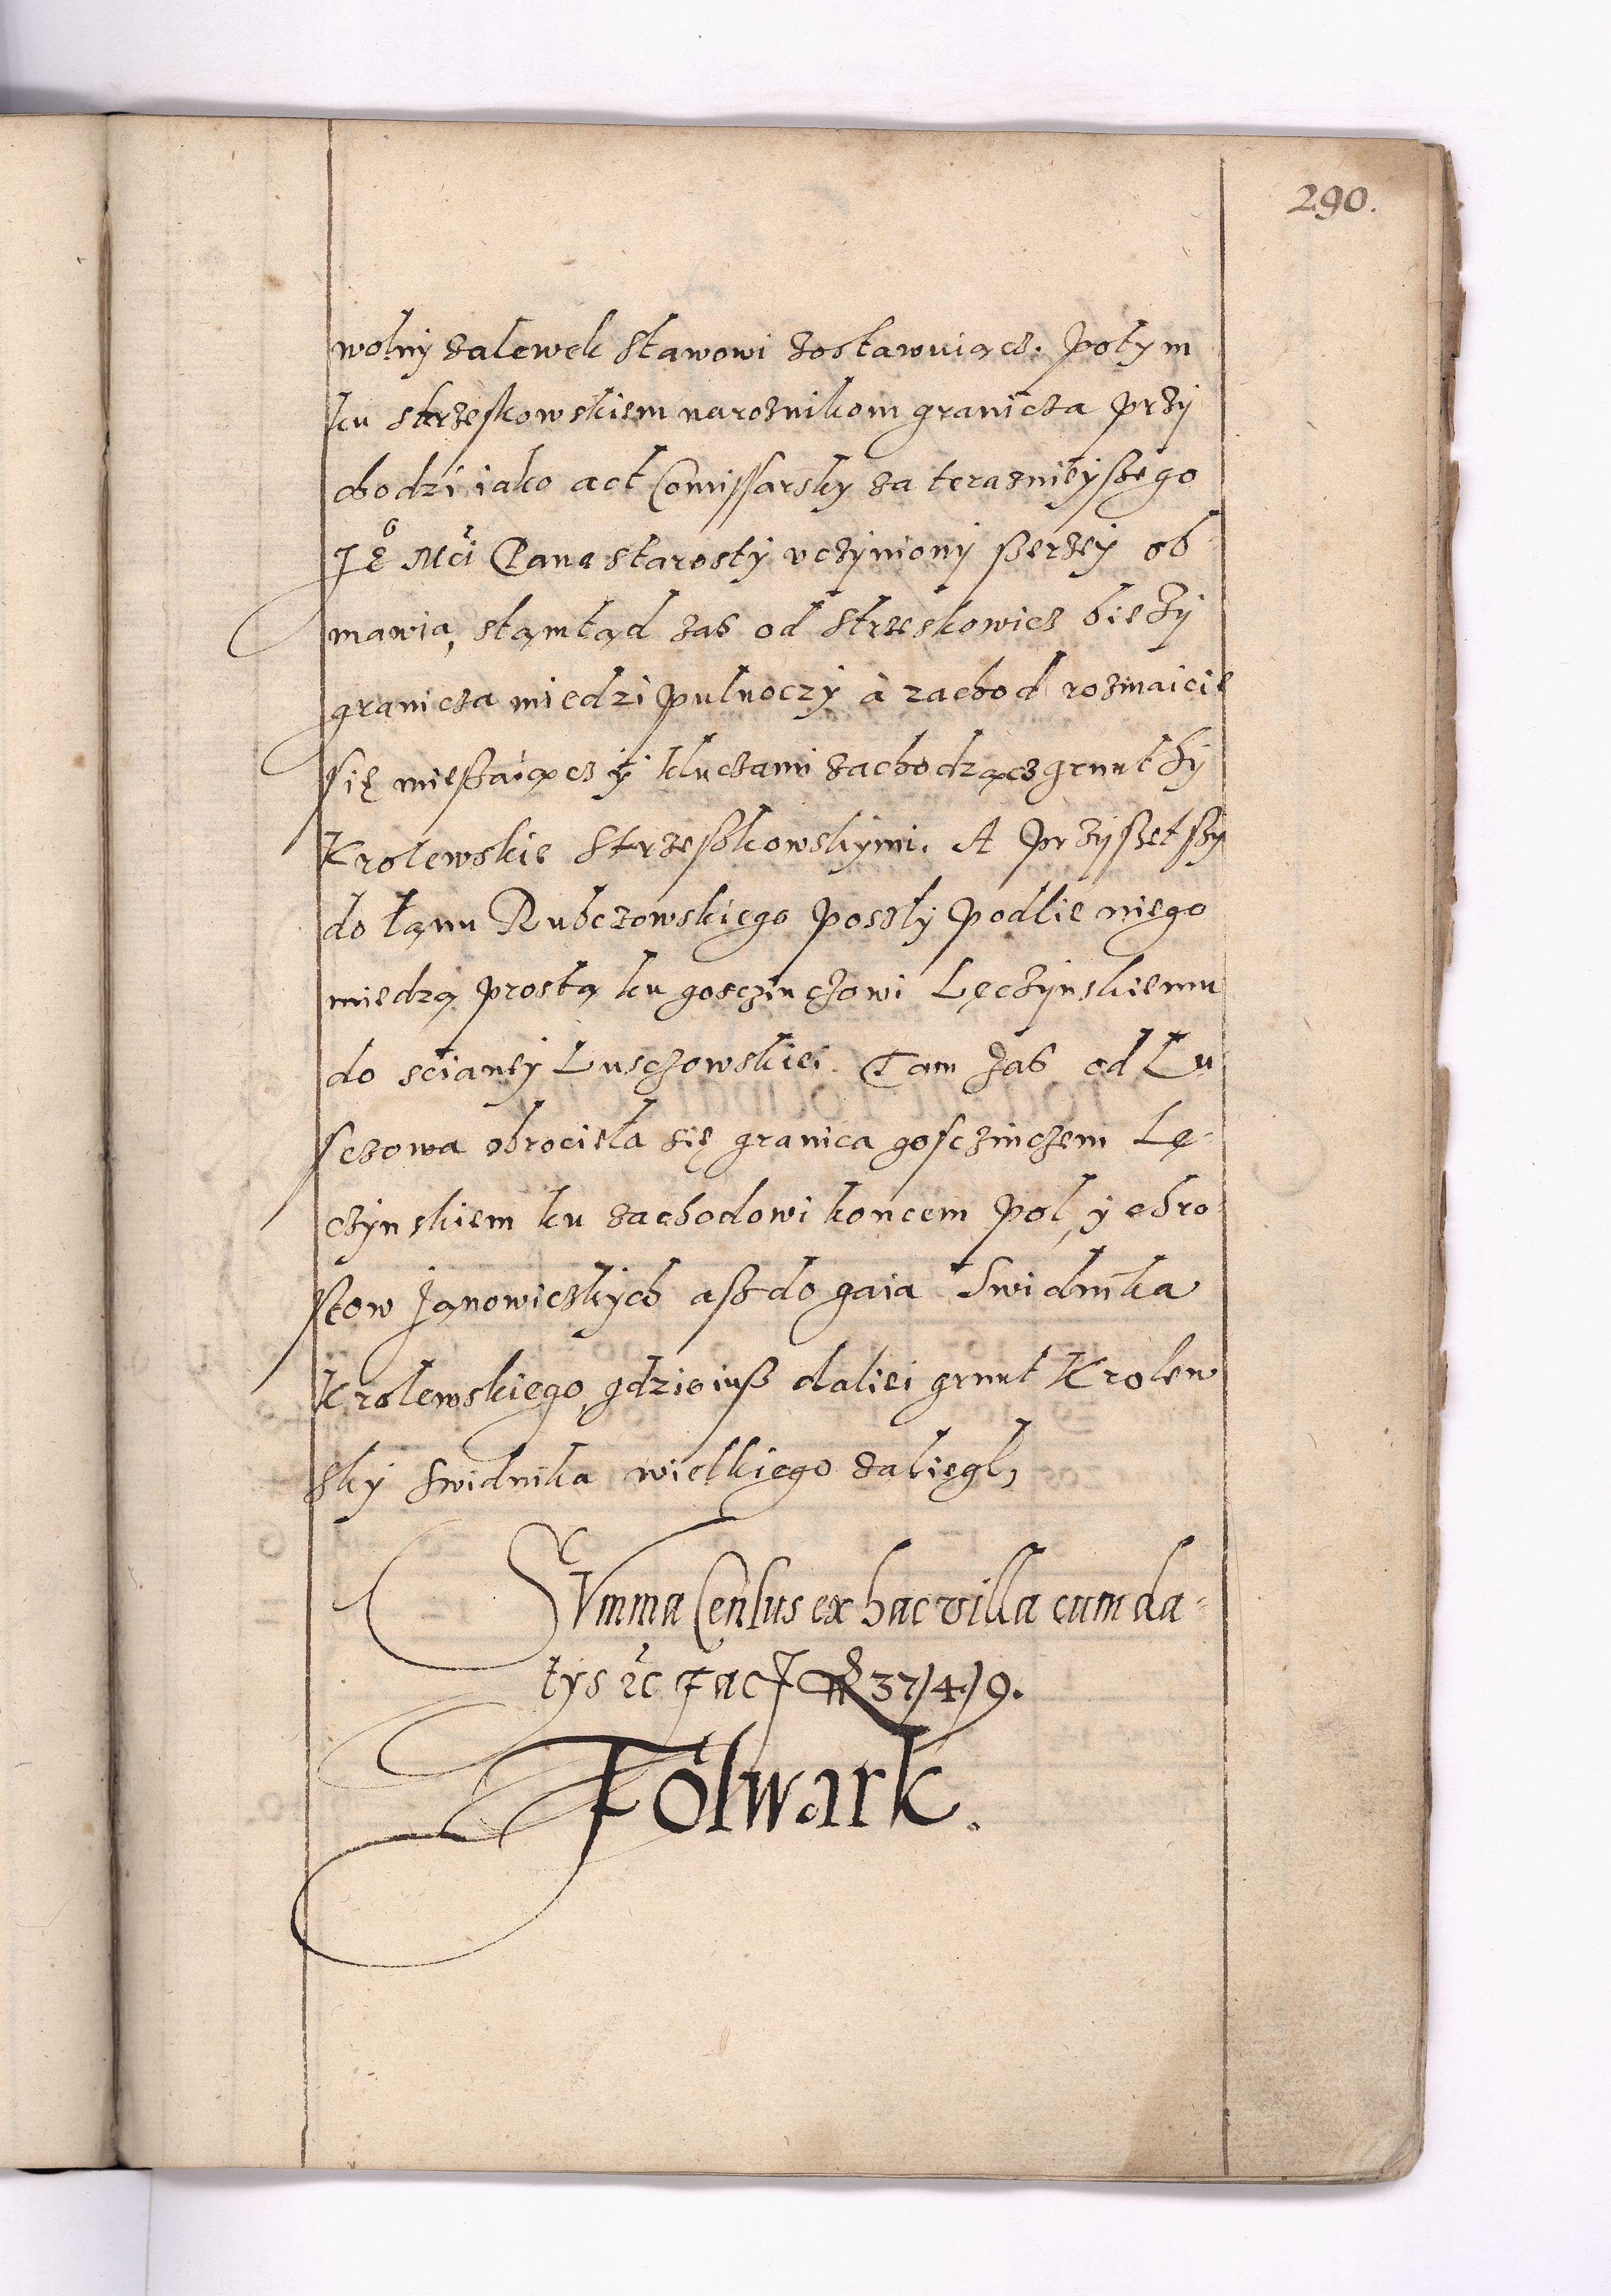 290.
wolny zalewek stawowi zostawuiącz. potym
ku strzeskowskiem naroznikom granicza przy
chodzi iako act Comissarsky za teraznieyszego
Je⁰ Mći Pana starosty vczyniony szerzey ob
mawia, stamtąd zaś od strzeskowicz bieży
granicza miedzi pulnoczy à zachod rozmaicie
się mieszaiącz y kluczami zachodzącz grunthy
Krolewskie strzeszkowskymi. A przyszetszy
do łanu Rubczowskiego poszły podlie niego
miedzą prostą ku gosczinczowi Lęczynskiemu
do scianey Lusczowskiei. Tam zaś od Lu
sczowa obrociela się granica gosczinczem Lę-
czynskiem ku zachodowi koncem pol, y chro
stow Janowiczkych asz do gaia Swidnika
Krolewskiego, gdzie iusz daliei grunt Krolew
sky swidnika wielkiego zaliegl,
SVmma Census ex hac villa cum da-
tys &c facJt 37/4/9.
Folwark.